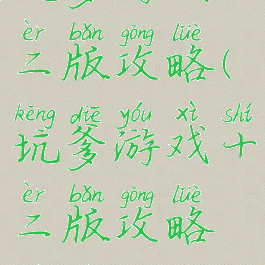 èr bǎn gōng lüè
二版攻略(
kēng diē yóu xì shí
坑爹游戏十
èr bǎn gōng lüè
二版攻略